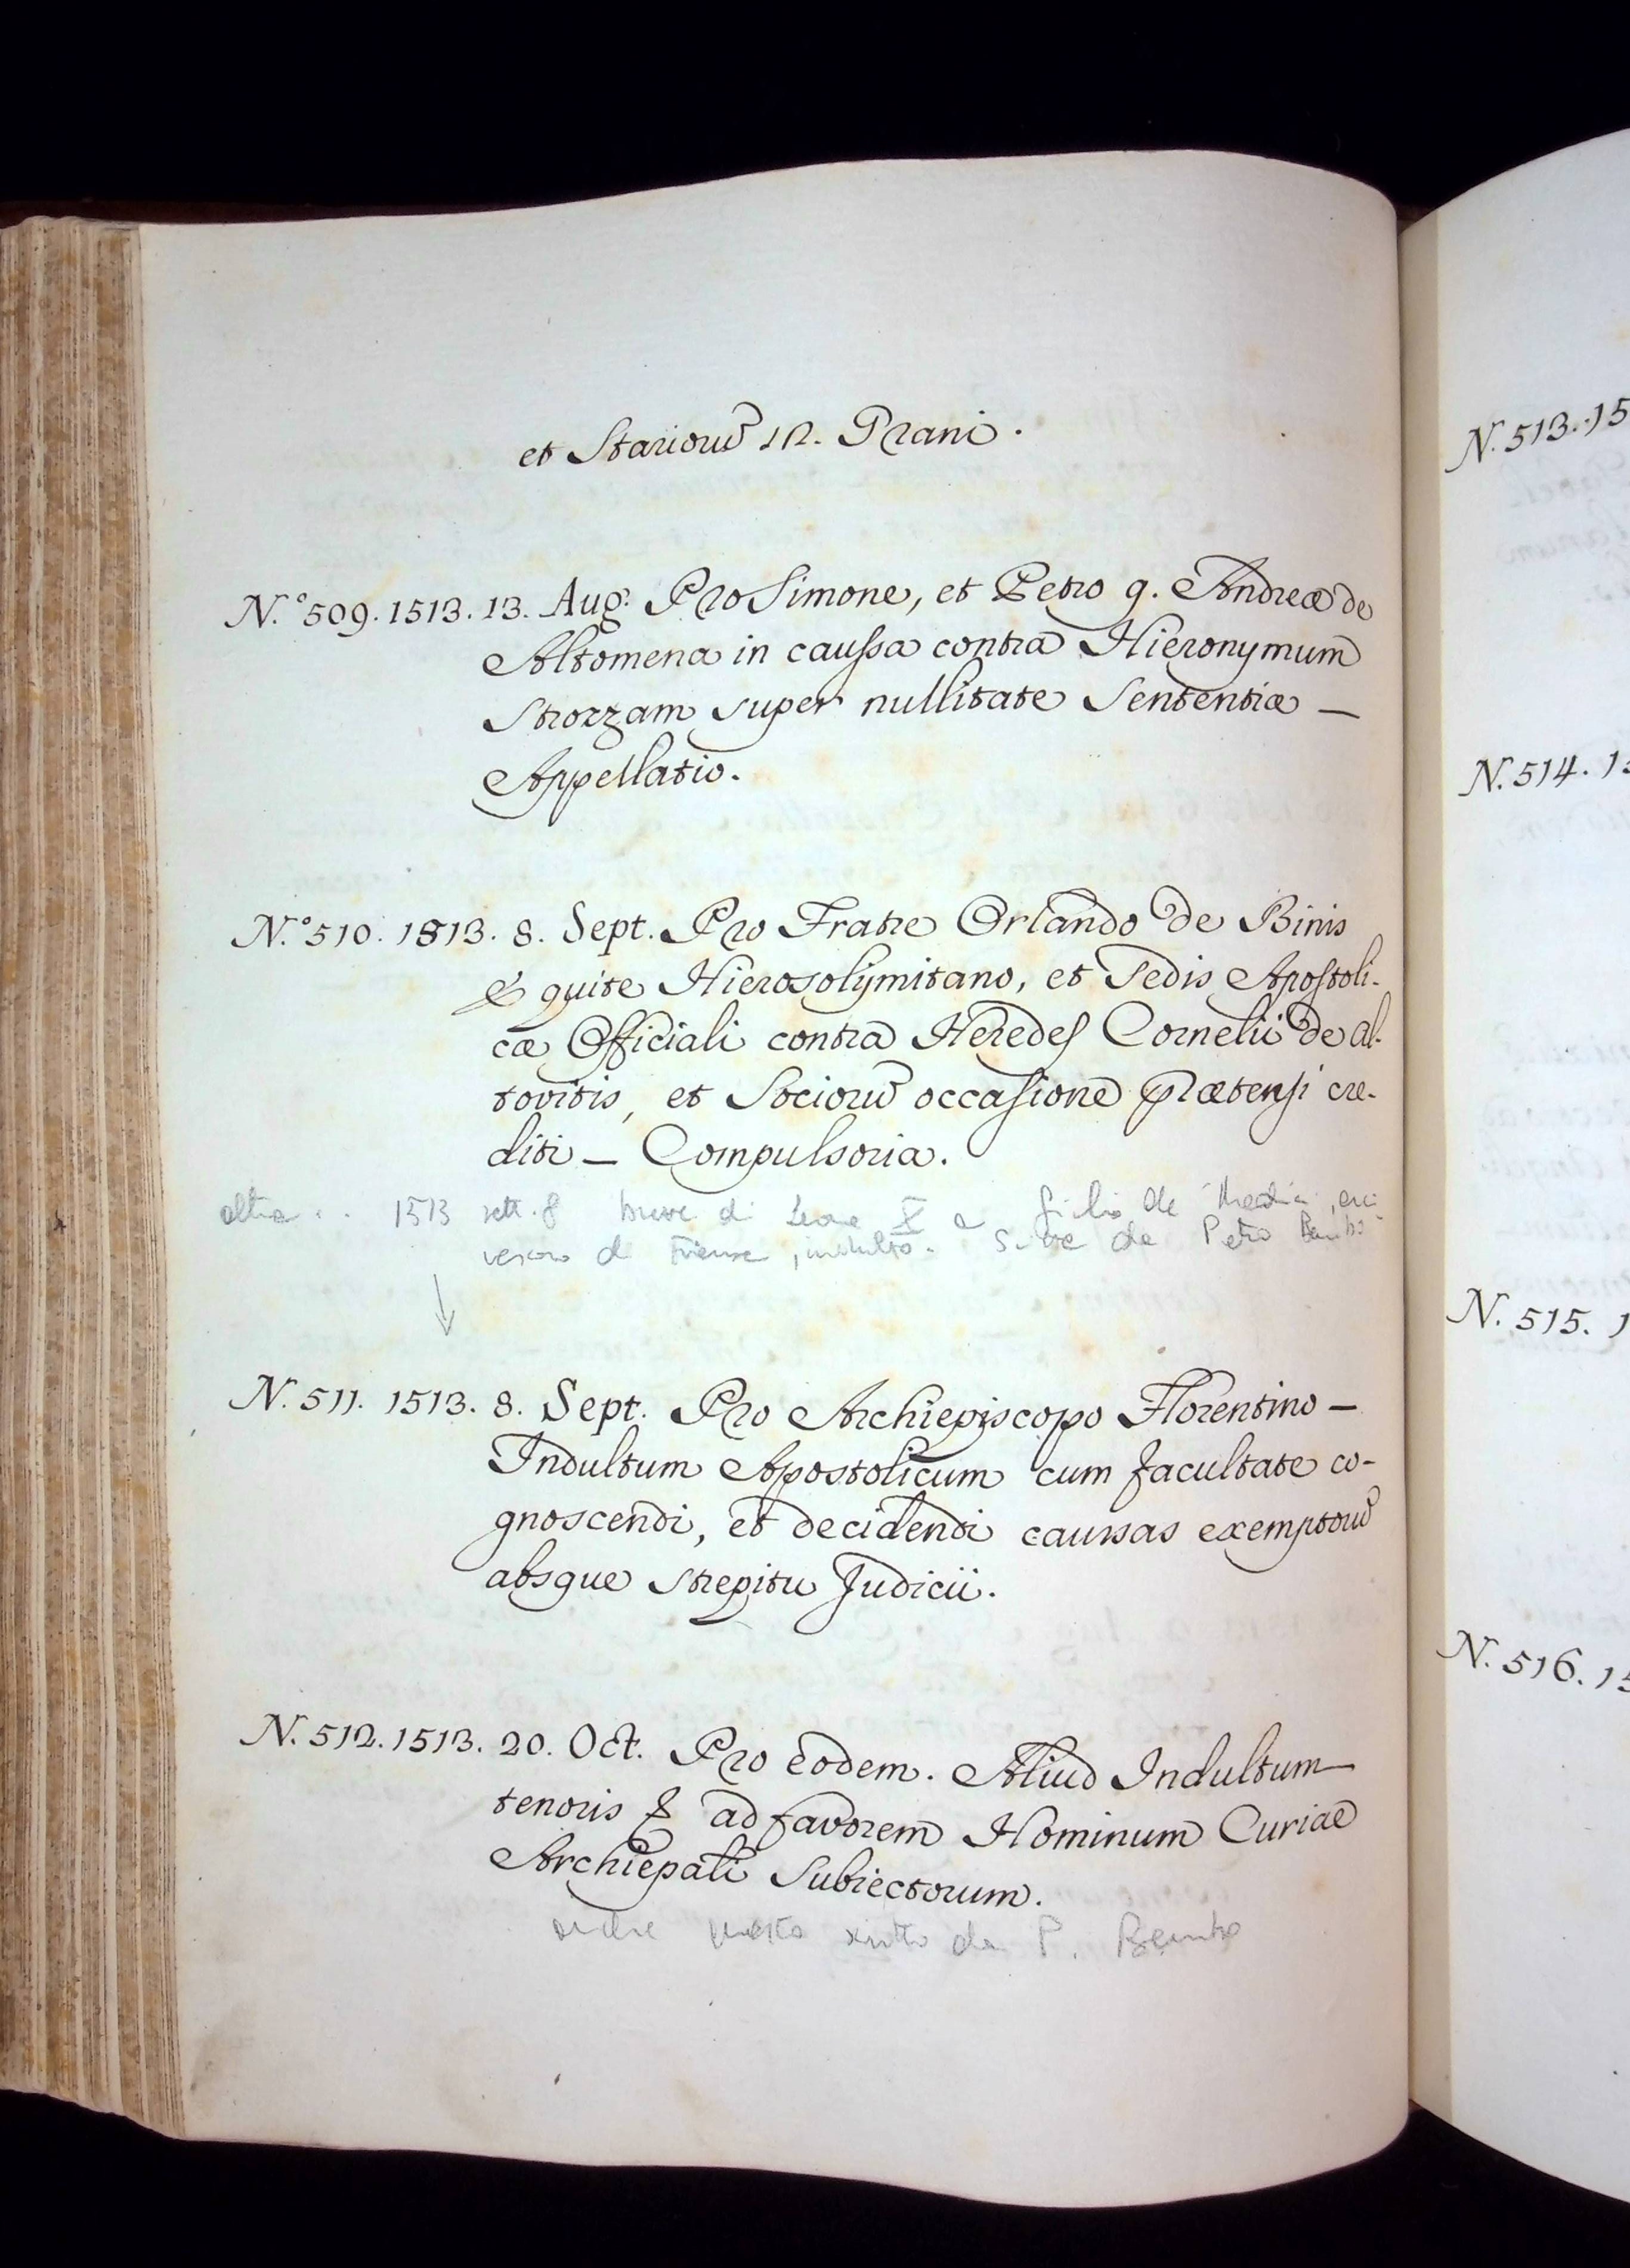 et Starioru᷈ 12. Grani.
N.º 509. 1513. 13. Aug: Pro Simone, et Petro q. Andreæ de
Altomena in caussa contra Hieronymum
Strozzam super nullitate Sententiæ —
Appellatio.
N.º 510. 1513. 8. Sept. Pro Fratre Orlando de Binis
Equite Hierosolymitano, et Sedis Apostoli-
cæ Officiali contra Heredes Cornelii de Al-
tovitis, et Socioru᷈ occasione prætensi cre-
diti — Compulsoria.
altra .. 1513 sett. 8 breve di Leone X a Giulio de Medici, arci
vescovo di Firenze, indulto. da Petro Bembo
N. 511. 1513. 8. Sept. Pro Archiepiscopo Florentino —
Indultum Apostolicum cum facultate co-
gnoscendi, et decidendi caussas exemptoru᷈
absque strepitu Judicii.
N. 512. 1513. 20. Oct. Pro eodem. Aliud Indultum
tenoris ad favorem Hominum Curiae
Archiepali Subiectorum.
anche questo scritto da P. Bembo
N. 513. 15
N. 514. 15
N. 515. 1
N. 516. 15